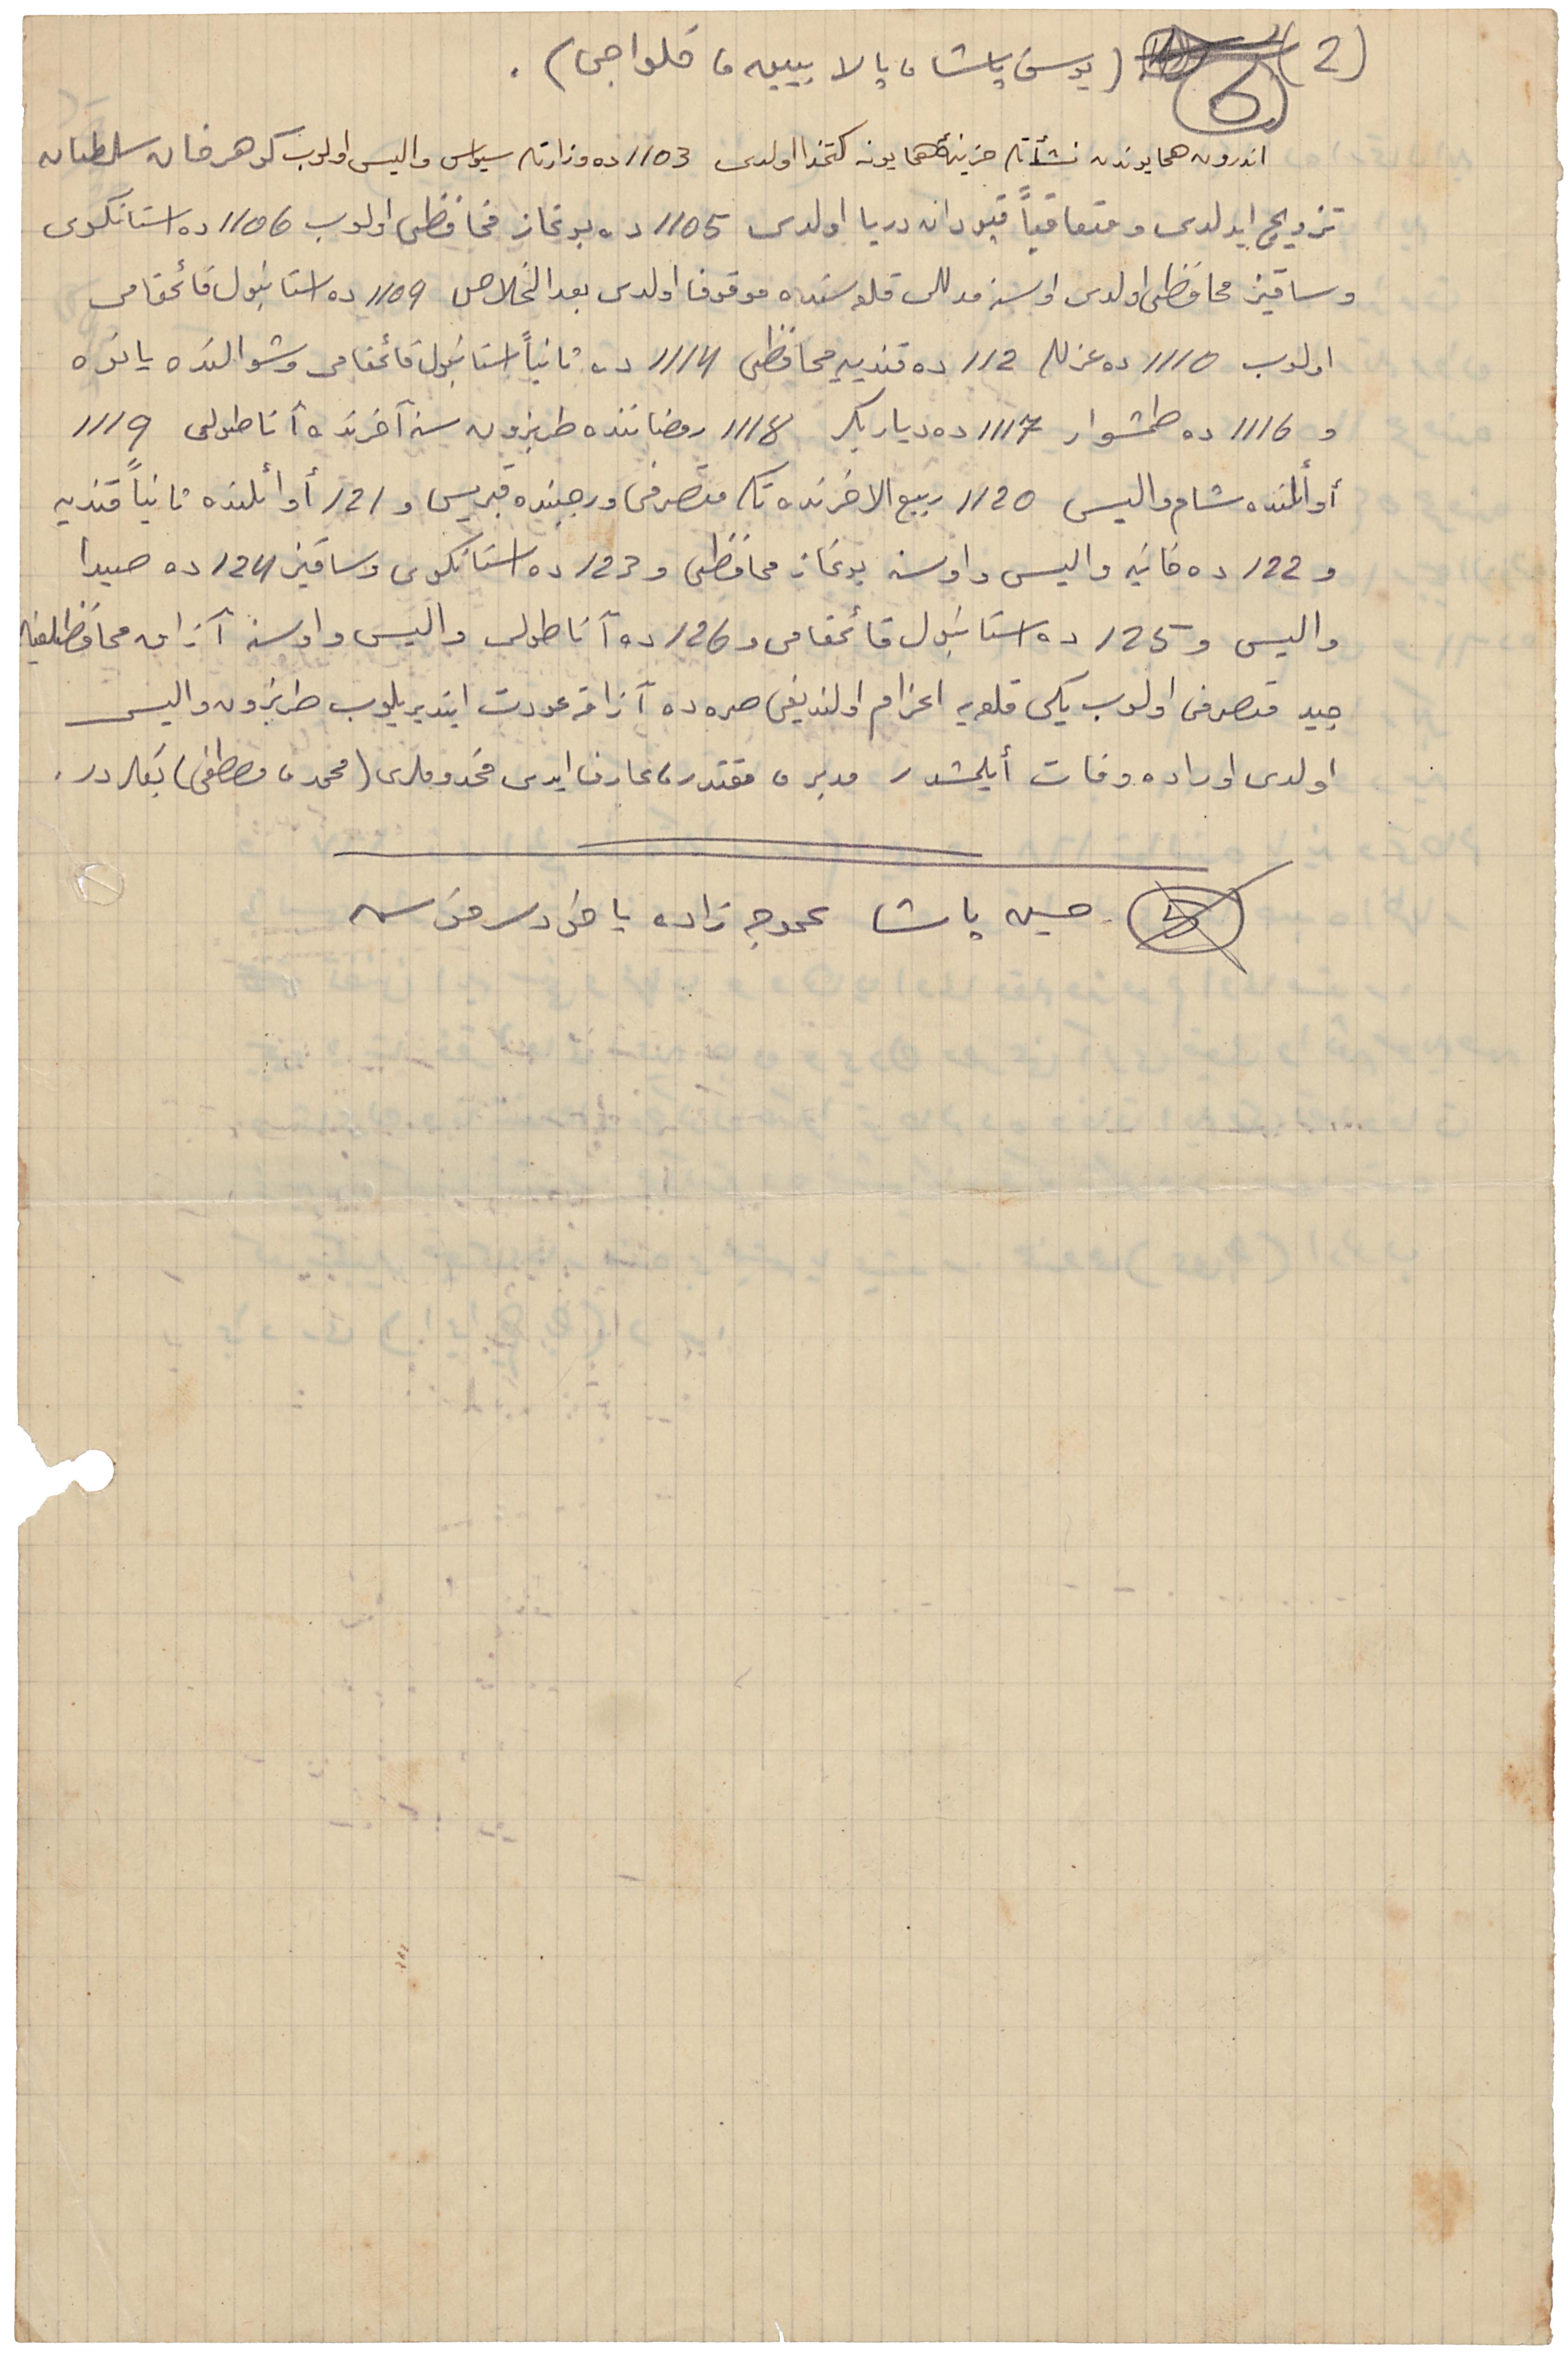 (2) 6 (يوسف پاشا، پالا بييق، قلواجى).
اندرون همايوندن نشأتله خزينهٔ همايونه كتخدا اولدى 1103 ده وزارتله سيواس واليسى اولوب كوهرخان سلطان
تزويج ايدلدى ومتعاقباً قپودان دريا اولدى 1105 ده بوغاز محافظى اولوب 1106 ده استانكوى
وساقيز محافظى اولدى اوسنه مدللى قلعه سنده موقوف اولدى بعد الخلاص 1109 ده استانبول قائمقامى
اولوب 1110 ده عزلله 112 ده قنديه محافظى 1114 ده ثانياً استانبول قائمقامى وشوالنده يانوه
و 1116 ده طمشوار 1117 ده دياربكر 1118 رمضاننده طربزون سنه آخرنده آناطولى 1119
أوائلنده شام واليسى 1120 ربيع الاخرنده تكه متصرفى ورجبنده قبريس و 121 أوائلنده ثانياً قنديه
و 122 ده خانيه واليسى واوسنه بوغاز محافظى و 123 ده استانكوى وساقيز 124 ده صيدا
واليسى و 125 ده استانبول قائمقامى و 126 ده آناطولى واليسى واوسنه آزاق محافظلغيله
متصرفى اولوب يكى قلعه يه اعزام اولنديغى صره ده آزاقه عودت ايتديريلوب طربزون واليسى
اولدى اوراده وفات أيلمشدر مدبر، مقتدر، عارف ايدى مخدوملرى (محمد، مصطفى) بكلردر.
5 حسين پاشا عموجه زاده يا خود سرخوش